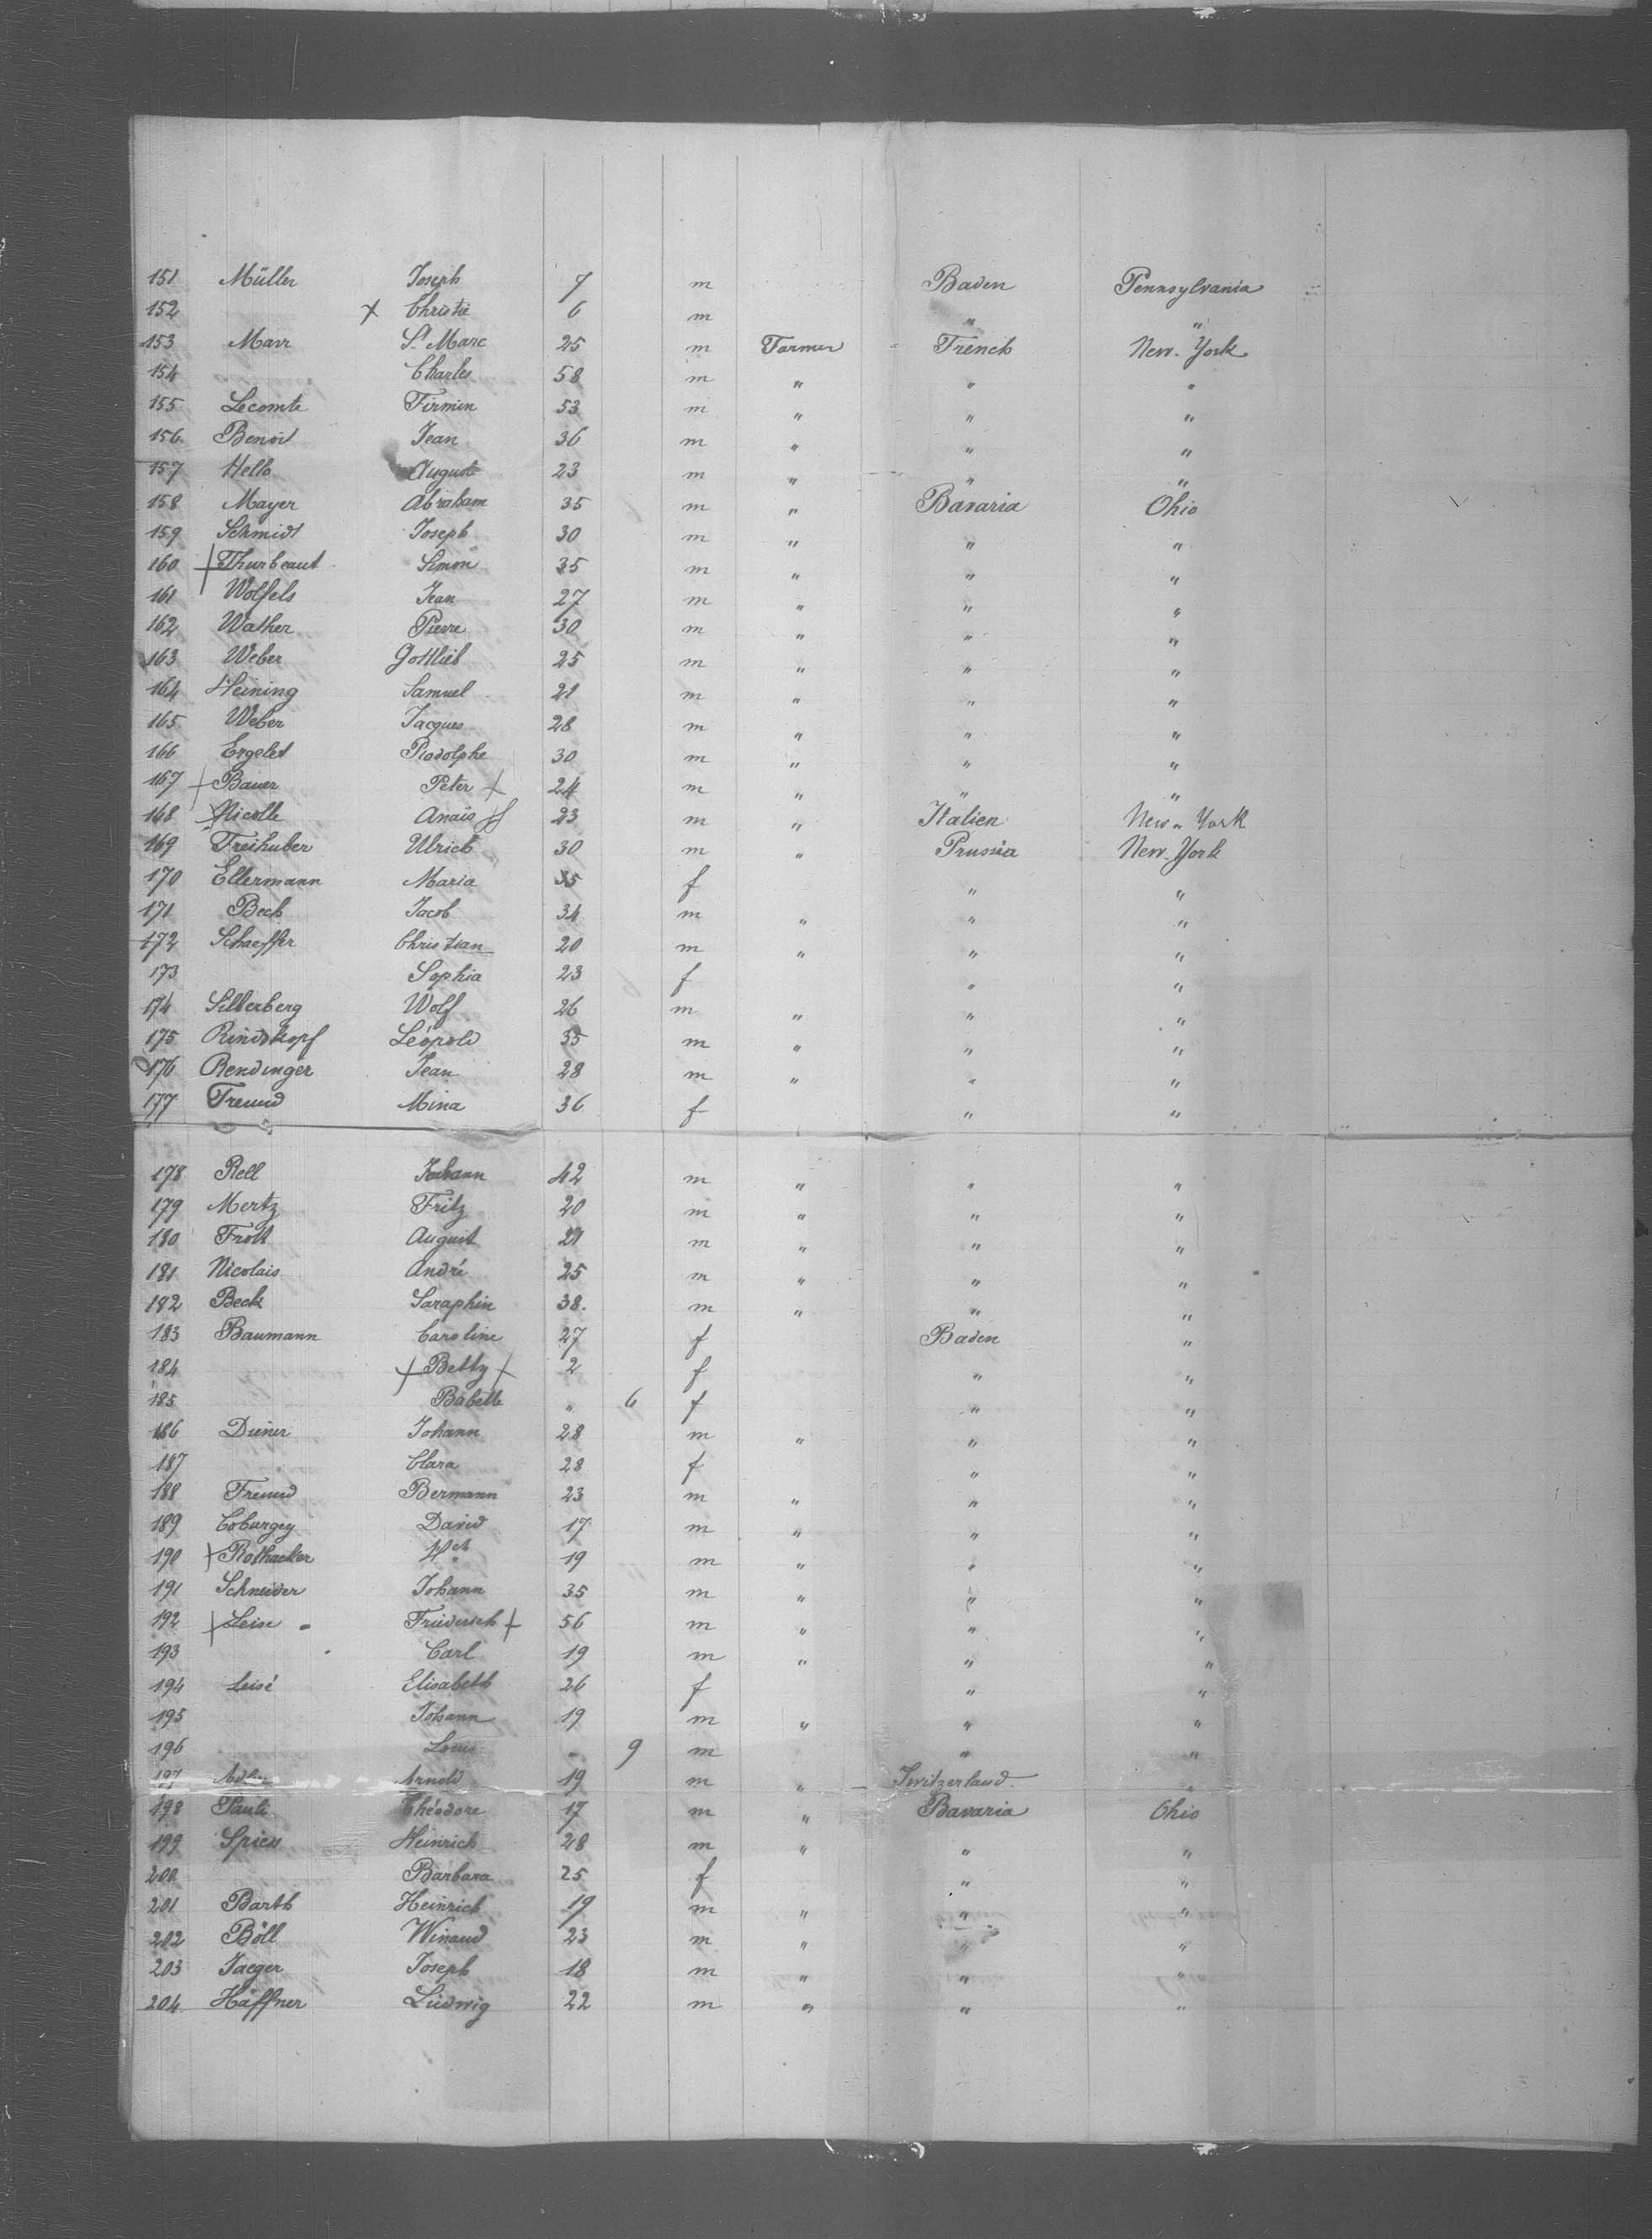 151 Müller Joseph 7 m Baden Pennsylvania
152 x Christie 6 m " "
153 Marr St. Marc 25 m Farmer French New-York
154 Charles 58 m " " "
155 Lecomte Firmin 53 m " " "
156. Benoit Jean 36 m " " "
157 Helb August 23 m " " "
158 Mayer Abraham 35 m " Bavaria Ohio
159 Schmidt Joseph 30 m " " "
160 + Thurbeaut Simon 35 m " " "
161 Wolfels Jean 27 m " " "
162 Wather Pierre 30 m " " "
163 Weber Gottlieb 25 m " " "
164 Heining Samuel 21 m " " "
165 Weber Jacques 28 m " " "
166 Ergelet Rodolphe 30 m " " "
167 + Bauer Peter + 24 m " " "
168 x Nicolle Anais 23 m " Italien New-York
169 Freihuber Ulrich 30 m " Prussia New-York
170 Ellermann Maria 35 f " "
171 Beck Jacob 34 m " " "
172 Schaeffer Christian 20 m " " "
173 Sophia 23 f " "
174 Silberberg Wolf 26 m " " "
175 Rindskopf Léopold 35 m " " "
176 Rendinger Jean 28 m " " "
177 Freund Mina 36 f " "
178 Rell Johann 42 m " " "
179 Mertz Fritz 20 m " " "
180 Frott August 21 m " " "
181 Nicolais André 25 m " " "
182 Beck Saraphin 38. m " " "
183 Baumann Caroline 27 f Baden "
184 + Betty + 2 f " "
185 Babette " 6 f " "
186 Diener Johann 28 m " " "
187 Clara 28 f " "
188 Freund Bermann 23 m " " "
189 Coburgey David 17 m " " "
190 + Rothacker 19 m " " "
191 Schneider Johann 35 m " " "
192 + Leise Friederich + 56 m " " "
193 Carl 19 m " " "
194 Leisé Elisabeth 26 f " "
195 Johann 19 m " " "
196 Louis " 9 m " "
197 Arnold 19 m " Switzerland "
198 Pauli Théodore 17 m " Bavaria Ohio
199 Spiess Heinrich 28 m " " "
200 Barbara 25 f " "
201 Barth Heinrich 19 m " " "
202 Böll Winand 23 m " " "
203 Jaeger Joseph 18 m " " "
204 Häffner Ludwig 22 m " " "